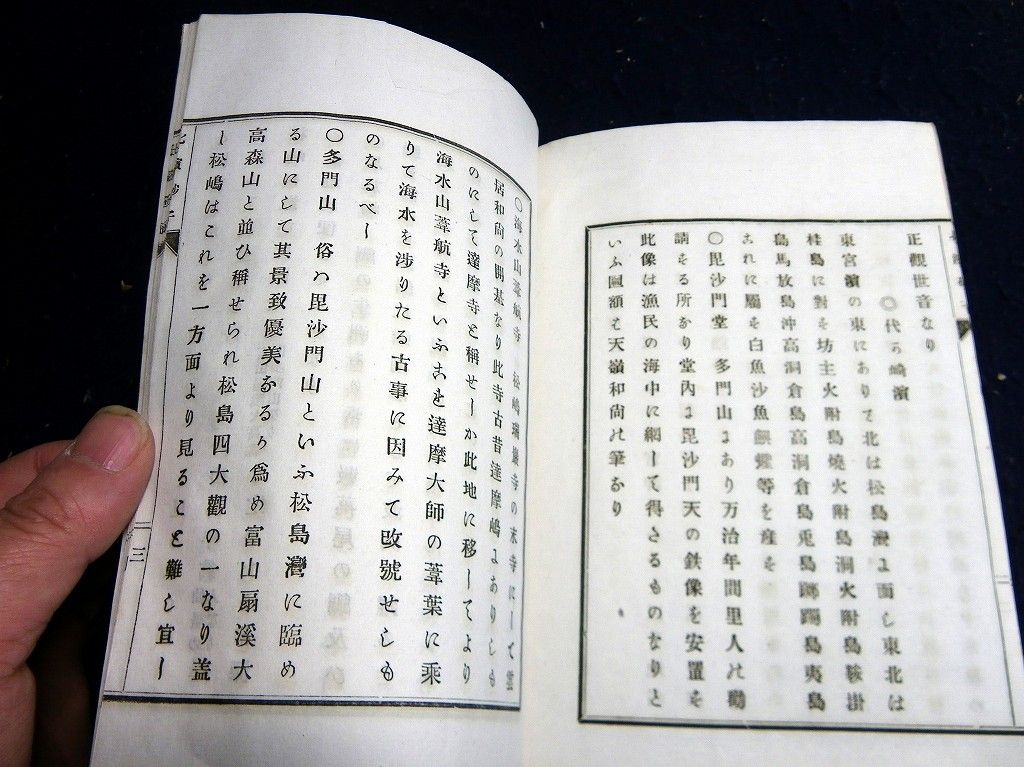 正觀世音なり
〇代ヶ崎濱
東宮濱の東にありて北は松島灣よ面し東北は
桂島に對を坊主火附島燒火附島洞火附島鞍掛
島馬放島沖高洞倉島高洞倉島兎島躑躅島夷島
あれに屬を白魚沙魚鰕蟶等を産を
〇毘沙門堂 多門山よあり万治年間里人の勸
請をる所なり堂内よ毘沙門天の鉄像を安置を
此像は漁民の海中に網して得さるものなりと
いふ匾額は天嶺和尚の筆なり
〇海水山葦航寺 松嶋瑞巖寺の末寺にして雲
居和尚の開基なり此寺古昔達摩嶋よありしも
のにして達摩寺と稱せしか此地に移してより
海水山葦航寺といふこを達摩大師の葦葉に乘
りて海水を渉りたる古事に因みて改號せしも
のなるべし
〇多門山 俗ハ毘沙門山といふ松島灣に臨め
る山にして其景致優美なるか爲め富山扇溪大
高森山と並ひ稱せられ松島四大觀の一なり盖
し松嶋はこれを一方面より見ること難し宜し
三